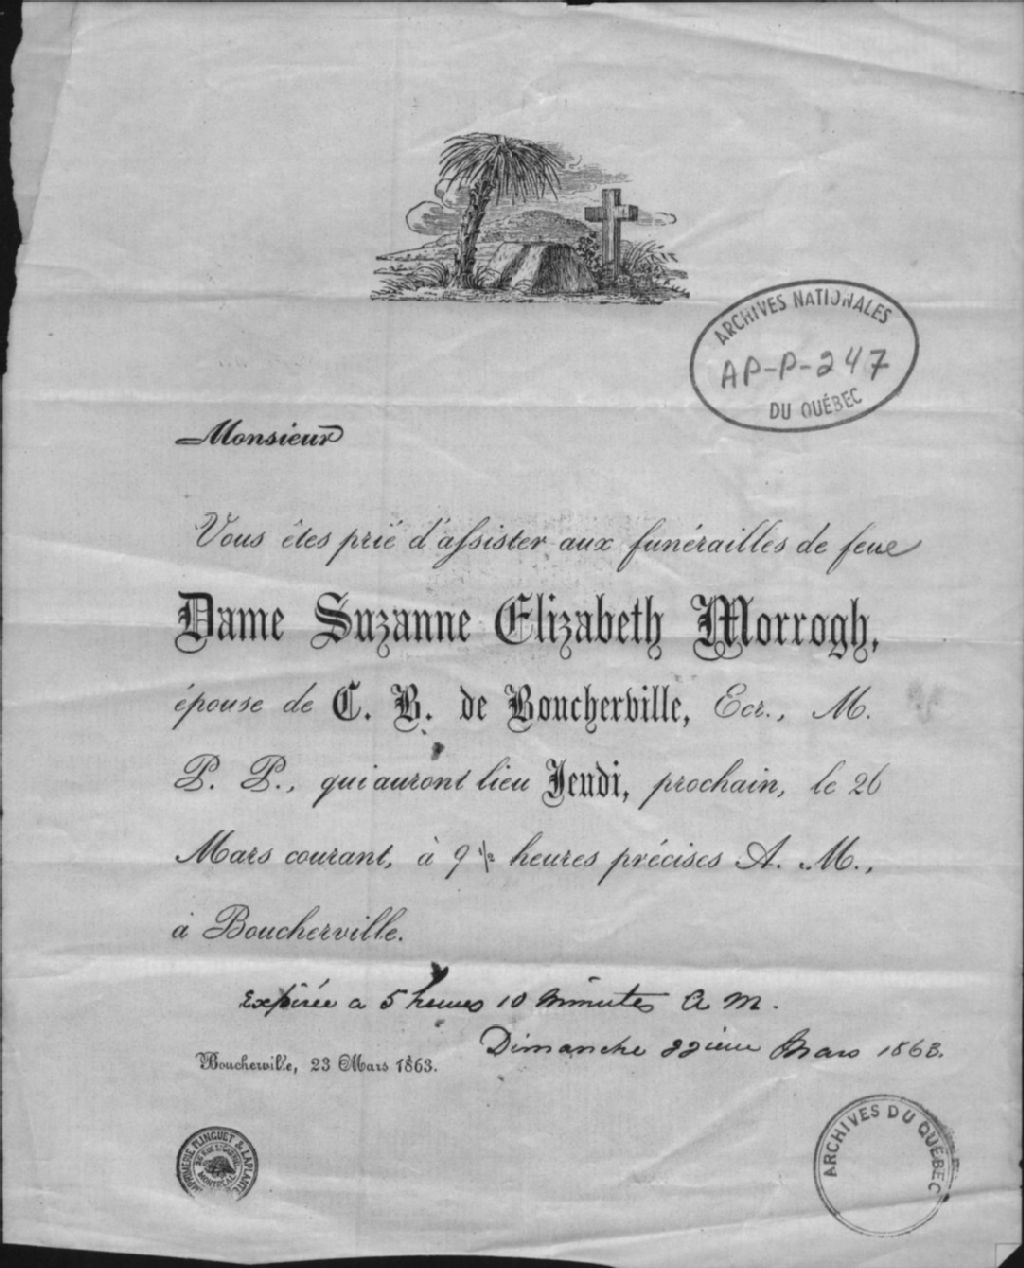 ARCHIVES NATIONALES
AP-P-247
DU QUÉBEC
Monsieur
Vous êtes prié d'assister aux funérailles de feue
Dame Suzanne Elizabeth Morrogh,
épouse de C. B. de Boucherville, Ecr., M.
P. P., qui auront lieu Jeudi, prochain, le 26
Mars courant, à 9 1/2 heures précises A. M.,
à Boucherville.
Expirée a 5 heures 10 minutes A M.
Dimanche 22ieme Mars 1863.
Boucherville, 23 Mars 1863.
IMPRIMERIE PLINGUET & LAPLANTE
MONTREAL
ARCHIVES DU QUÉBEC